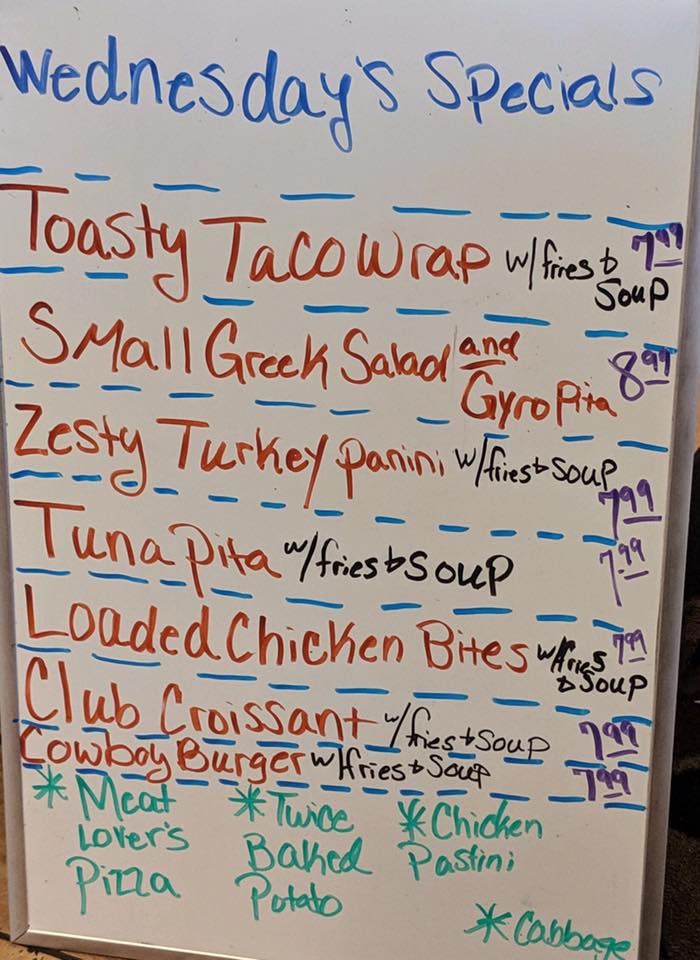 Wednesday's Specials
Toasty Taco Wrap w/fries & Soup 7.99
Small Greek Salad and Gyro Pita 8.99
Zesty Turkey Panini w/fries & Soup 7.99
Tuna Pita w/fries & Soup 7.99
Loaded Chicken Bites w/fries & Soup 7.99
Club Croissant w/fries & Soup 7.99
Cowboy Burger w/fries & Soup 7.99
* Meat Lover's Pizza
* Twice Baked Potato
* Chicken Pastini
* Cabbage